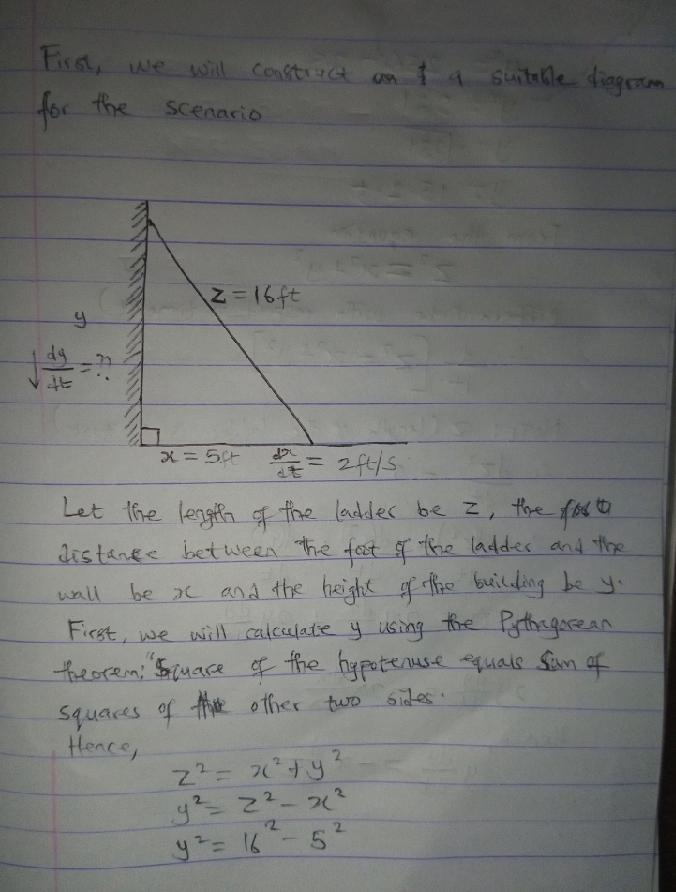 First, we will construct an & a suitable diagram
for the scenario
z = 16ft
y
dy/dt = ??
x = 5ft dx/dt = 2ft/s
Let the length of the ladder be z, the
distance between the foot of the ladder and the
wall be x and the height of the building be y.
First, we will calculate y using the Pythagorean
theorem: "Square of the hypotenuse equals Sum of
squares of the other two sides.
Hence,
z² = x² + y²
y² = z² - x²
y² = 16² - 5²